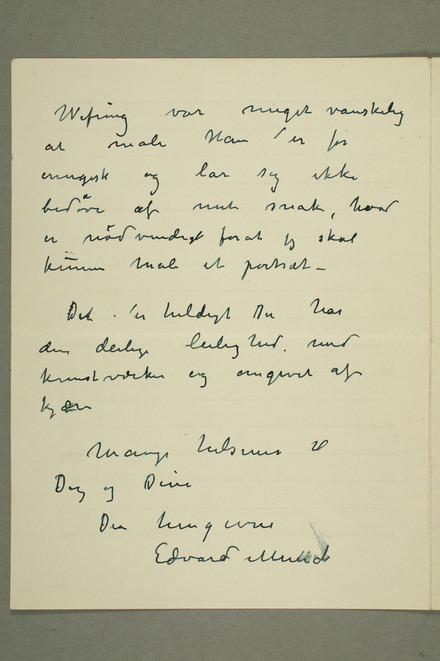 Wefring var meget vanskelig
at male Han er for
energisk og lar sig ikke
bedøve af mit snak, hvad
er nødvendigt forat jeg skal
kunne male et portræt –
Det er heldigt Du har
den deilige leilighed. med
kunstværker og omgivet af
Mange hilsener til
Dig og Dine
Din hengivne
Edvard Munch